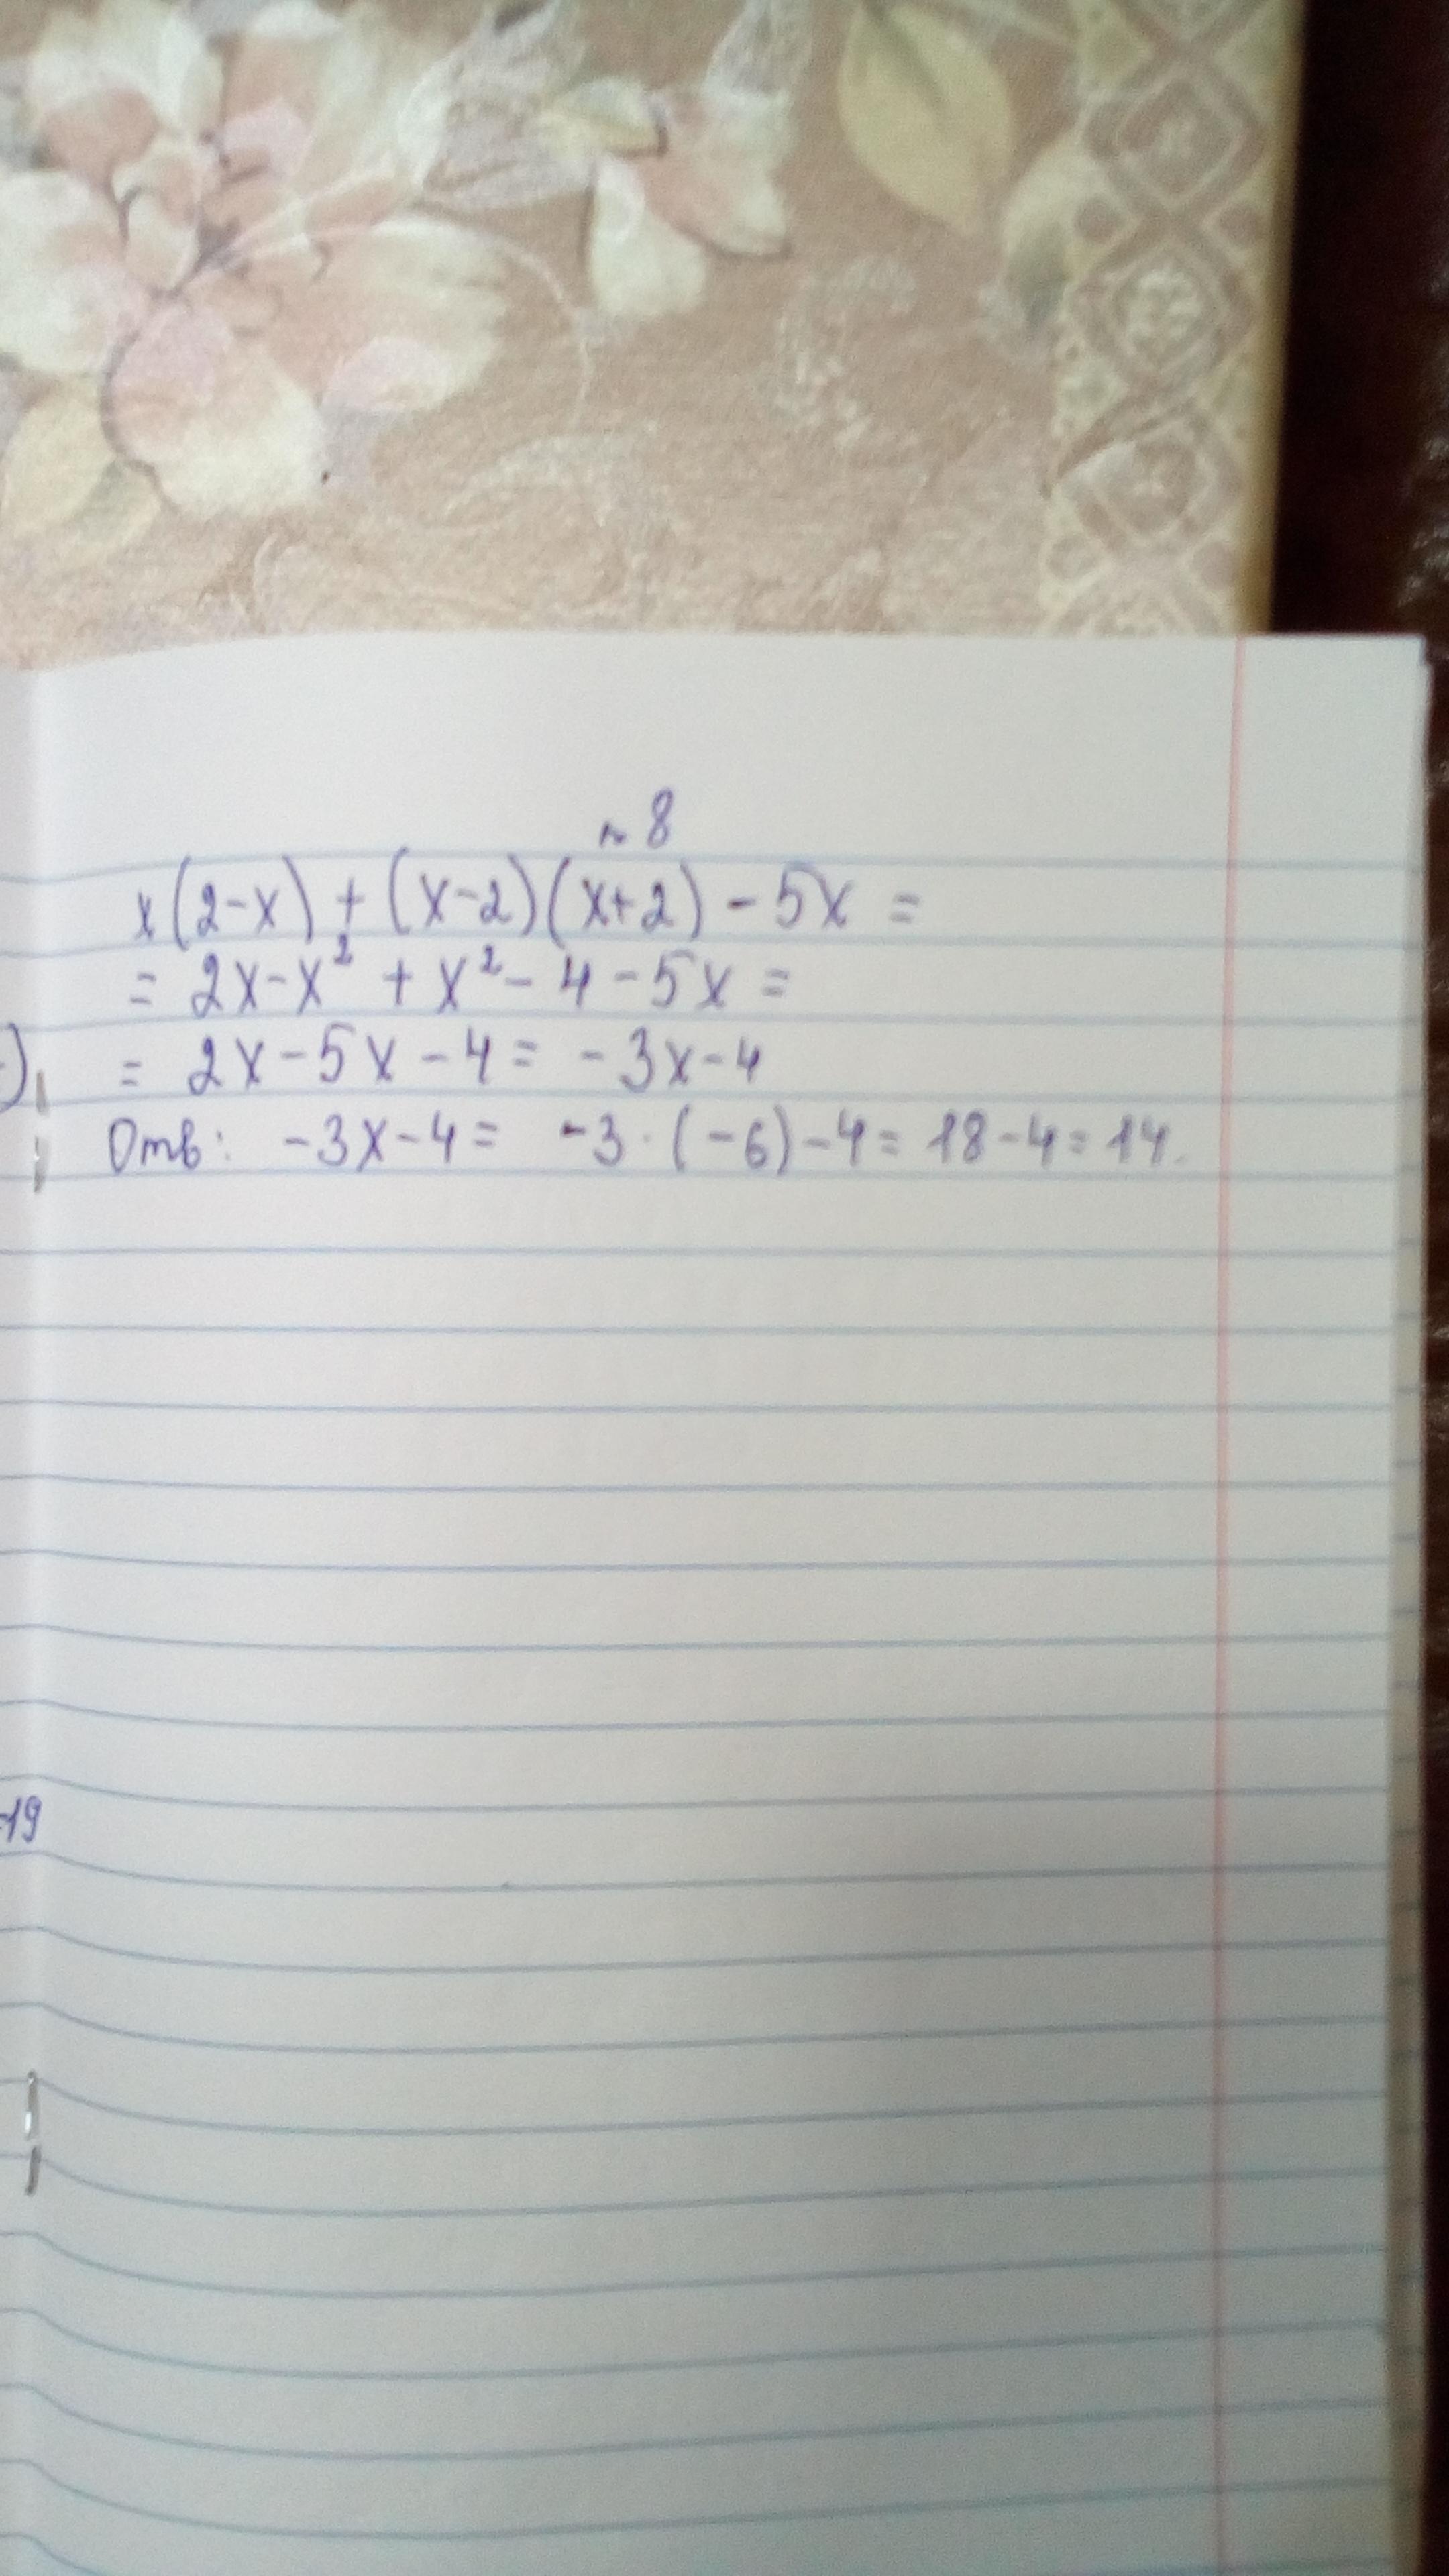 № 8
x(2-x)+(x-2)(x+2)-5x=
= 2x-x² + x²-4-5x=
= 2x-5x-4= -3x-4
Отв: -3x-4= -3·(-6)-4=18-4=14.
).
-19